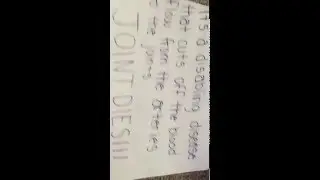 It's a disabling disease
that cuts off the blood
flow from the arteries
the joints
JOINT DIES!!!